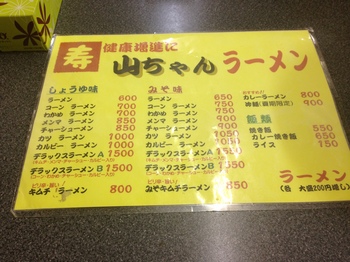 寿 健康増進に
山ちゃんラーメン
しょうゆ味
ラーメン 600
コーン ラーメン 700
わかめ ラーメン 700
メンマ ラーメン 850
チャーシューメン 850
カツ ラーメン 1000
カルビー ラーメン 1000
デラックスラーメンA 1500
デラックスラーメンB 1500
ピリ辛・旨い!
キムチ ラーメン 800
みそ味
ラーメン 650
コーン ラーメン 750
わかめ ラーメン 750
メンマ ラーメン 900
チャーシューメン
カツ ラーメン
カルビー ラーメン
デラックスラーメンA 1550
デラックスラーメンB 1550
ピリ辛・旨い!
みそキムチラーメン 850
カレーラーメン 800
冷麺(夏期限定) 900
飯類
焼き飯 550
カレー焼き飯 650
ライス 150
ラーメン
(各 大盛200円増し)